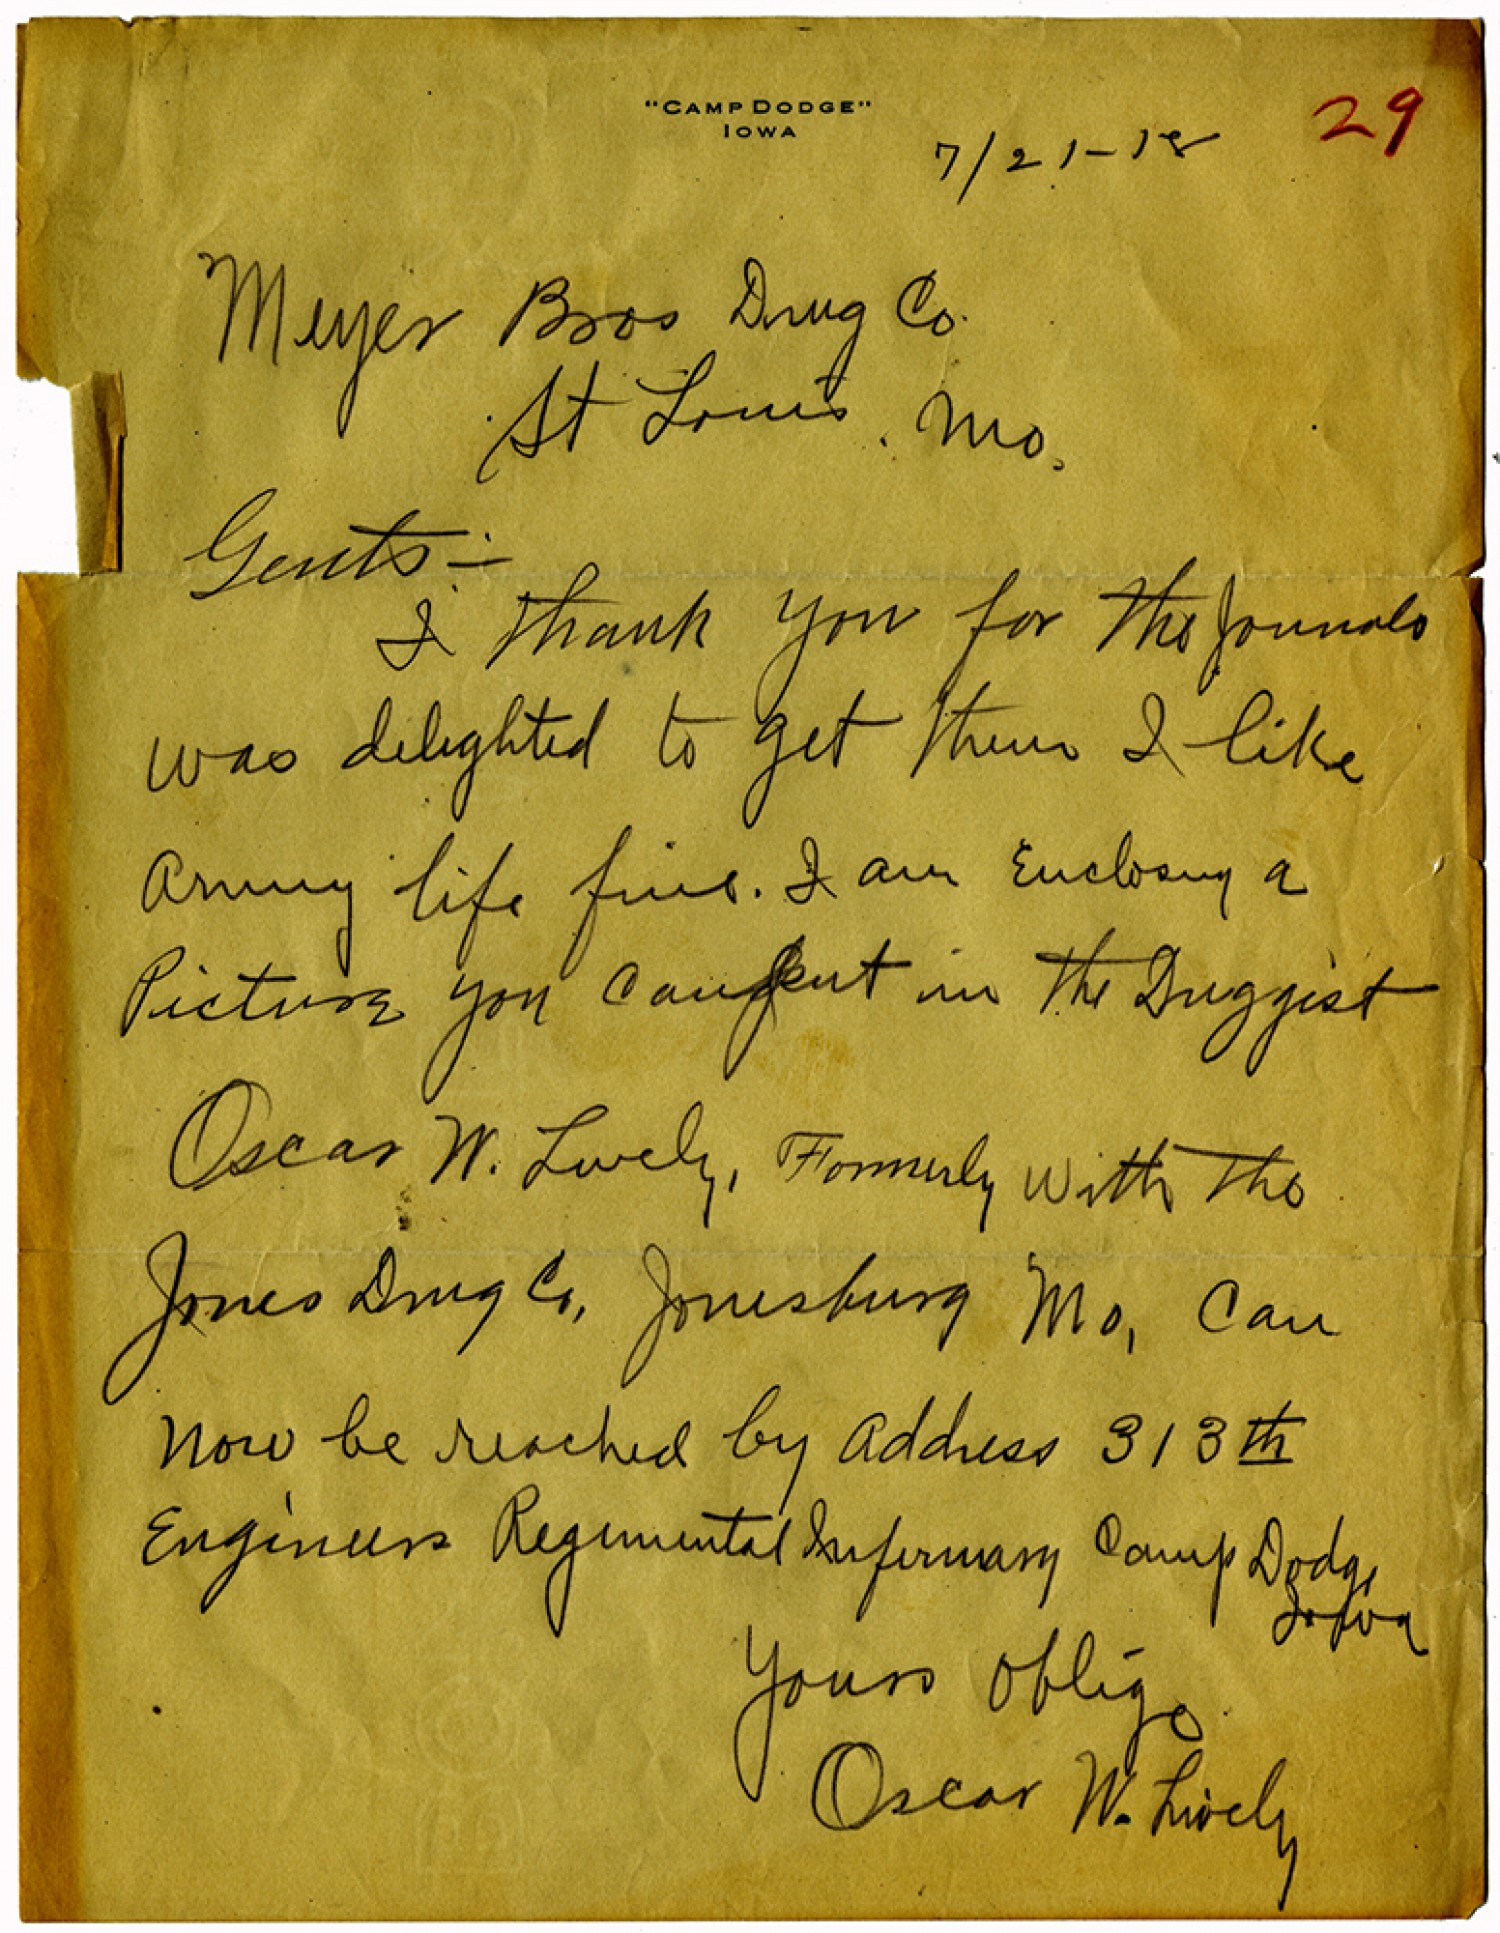 "CAMP DODGE"
IOWA
29
7/21-18
Meyer Bros Drug Co.
St Louis, Mo.
Gents:-
I thank you for the Journals
was delighted to get them I like
Army life fine. I am Enclosing a
Picture you can put in the Druggist
Oscar W. Lively, Formerly with the
Jones Drug Co, Jonesburg Mo, Can
Now be reached by Address 313th
Engineers Regimental Infirmary Camp Dodge
Iowa
Yours Oblige
Oscar W. Lively